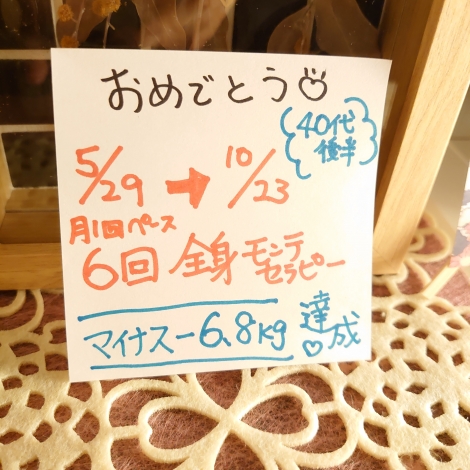 おめでとう♡
40代
後半
5/29 → 10/23
月1回ペース
6回 全身 モンテセラピー
マイナスー6.8kg 達成♡